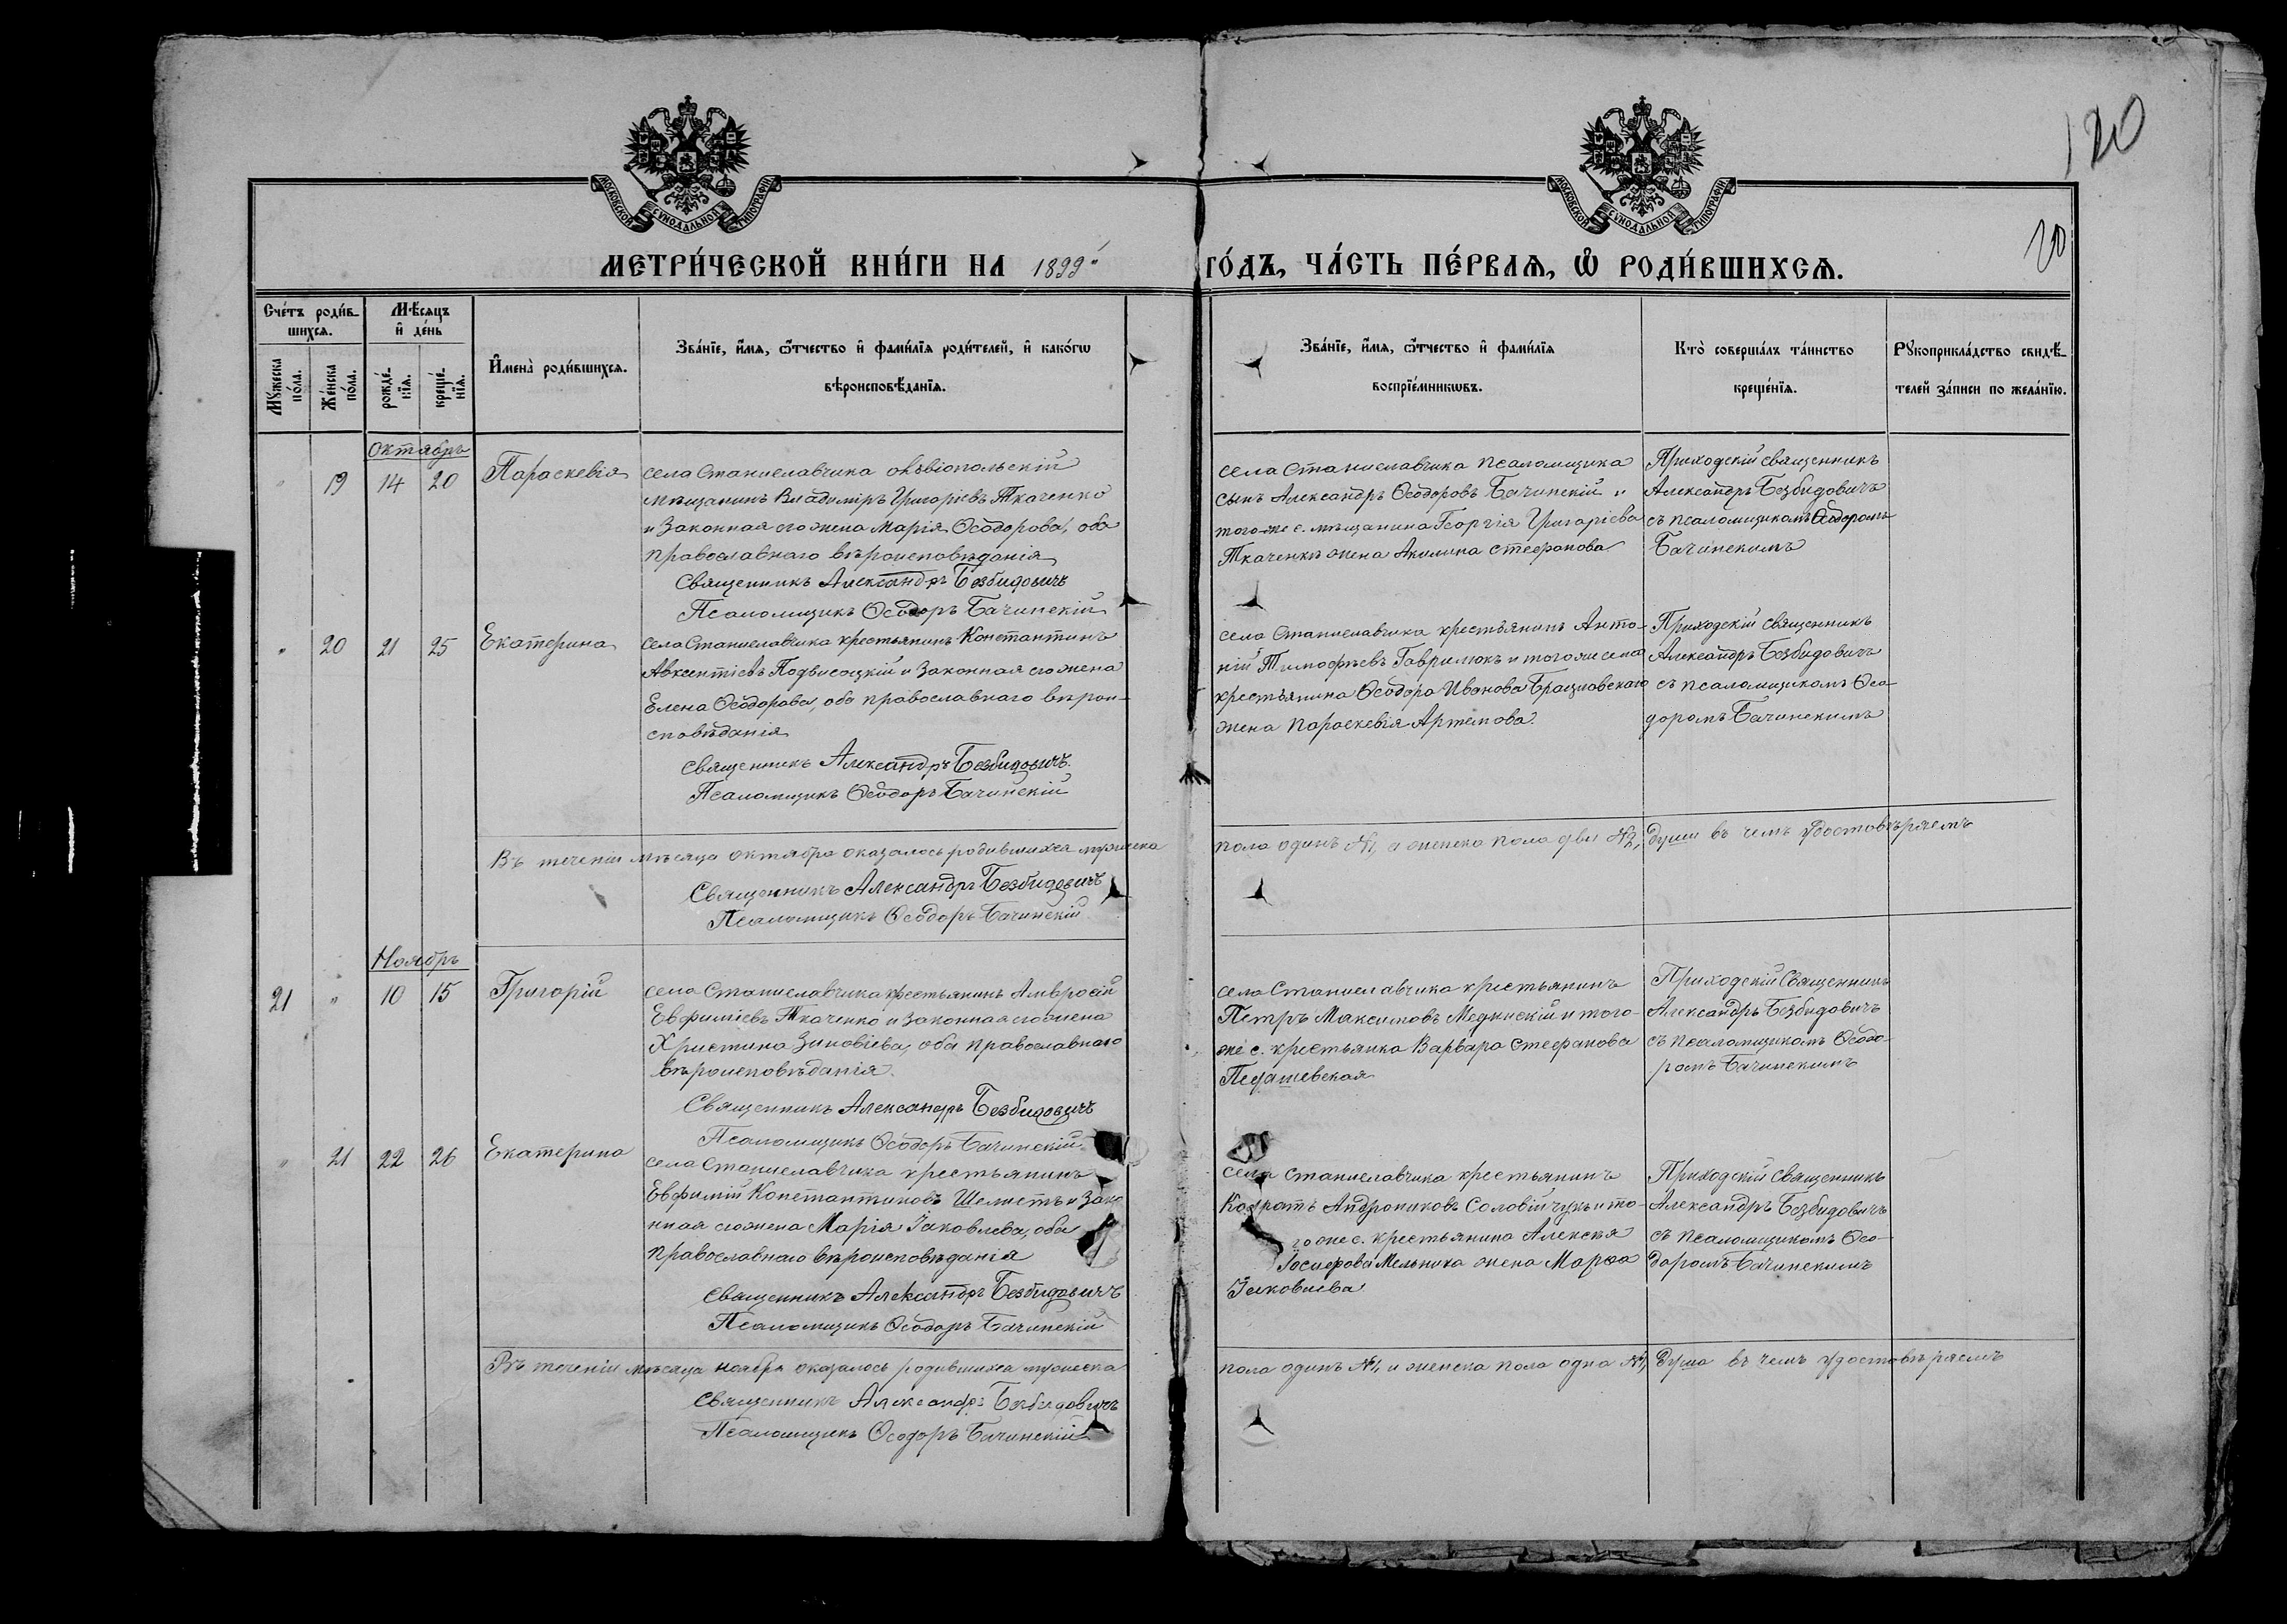 120
20
МОСКОВСКОЙ СѴНОДАЛЬНОЙ ТИПОГРАФІИ
МОСКОВСКОЙ СѴНОДАЛЬНОЙ ТИПОГРАФІИ
МЕТРИ́ЧЕСКОЙ КНИ́ГИ НА 1899й
ГО́ДЪ, ЧА́СТЬ ПЕ́РВАЯ, Ѽ РОДИ́ВШИХСЯ.
Сче́тъ роди́в-
шихся.
Мѣ́сяцъ
и҆ де́нь
Мꙋ́жеска
по́ла.
Же́нска
по́ла.
рожде́-
нїя.
креще́-
нїя.
И҆мена̀ роди́вшихся.
Зва́нїе, и҆́мя, ѻ҆́тчество и҆ фами́лїя роди́телей, и҆ како́гѡ
вѣроисповѣ́данїя.
Зва́нїе, и҆́мя, ѻ҆́тчество и҆ фами́лїя
воспрїе́мникѡвъ.
Кто̀ соверша́лъ та́инство
креще́нїя.
Рꙋкоприкла́дство свидѣ́-
телей за́писи по жела́нїю.
Октябрь
" 19 14 20 Параскевія
села Станиславчика овѣдіопольскій
мѣщанинъ Владиміръ Григоріевъ Ткаченко
и законная его жена Марія Ѳеодорова, оба
православнаго вѣроисповѣданія
Священникъ Александръ Безбидовичъ
Псаломщикъ Ѳеодоръ Бачинскій
села Станиславчика псаломщика
сынъ Александръ Ѳеодоровъ Бачинскій и
того-же с. мѣщанина Георгія Григоріева
Ткаченка жена Акилина Стефанова
Приходскій священникъ
Александръ Безбидовичъ
съ псаломщикомъ Ѳеодоромъ
Бачинскимъ
" 20 21 25 Екатерина
села Станиславчика крестьянинъ Константинъ
Авксентіевъ Подвисоцкій и законная его жена
Елена Ѳеодорова, оба православнаго вѣрои-
сповѣданія
Священникъ Александръ Безбидовичъ.
Псаломщикъ Ѳеодоръ Бачинскій
села Станиславчика крестьянинъ Анто-
ній Тимофѣевъ Гаврилюкъ и того же села
крестьянина Ѳеодора Иванова Брацлавскаго
жена Параскевія Артемова.
Приходскій священникъ
Александръ Безбидовичъ
съ псаломщикомъ Ѳео-
доромъ Бачинскимъ
Въ теченіи мѣсяца октября оказалось родившихся мужеска
пола одинъ №1, а женска пола двѣ №2, души въ чемъ удостовѣряемъ
Священникъ Александръ Безбидовичъ
Псаломщикъ Ѳеодоръ Бачинскій
Ноябрь
21 " 10 15 Григорій
села Станиславчика крестьянинъ Амвросій
Евфиміевъ Ткаченко и законная его жена
Христина Зиновіева, оба православнаго
вѣроисповѣданія.
Священникъ Александръ Безбидовичъ
Псаломщикъ Ѳеодоръ Бачинскій
села Станиславчика крестьянинъ
Петръ Максимовъ Мединскій и того-
же с. крестьянка Варвара Стефанова
Педашевская
Приходскій Священникъ
Александръ Безбидовичъ
съ псаломщикомъ Ѳеодо-
ромъ Бачинскимъ
" 21 22 26 Екатерина
села Станиславчика крестьянинъ
Евфимій Константиновъ Шелистъ и зако
нная его жена Марія Іаковлева, оба
православнаго вѣроисповѣданія
Священникъ Александръ Безбидовичъ
Псаломщикъ Ѳеодоръ Бачинскій
села Станиславчика крестьянинъ
Кодратъ Андрониковъ Соловійчукъ и то-
го же с. крестьянина Алексѣя
Іосифова Мельника жена Марѳа
Іаковлева
Приходскій Священникъ
Александръ Безбидовичъ
съ псаломщикомъ Ѳео-
доромъ Бачинскимъ
Въ теченіи мѣсяца ноября оказалось родившихся мужеска
пола одинъ №1, и женска пола одна №1, душа въ чемъ удостовѣряемъ
Священникъ Александръ Безбидовичъ
Псаломщикъ Ѳеодоръ Бачинскій